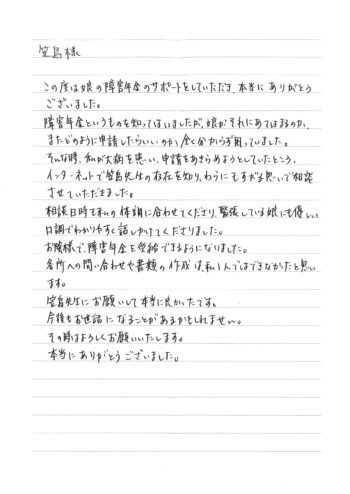 笠島様
この度は娘の障害年金のサポートをしていただき、本当にありがとう
ございました。
障害年金というものを知ってはいましたが、娘がそれにあてはまるのか、
またどのように申請したらいいのか、全く分からず困っていました。
そんな時、私が大病を患い、申請をあきらめようとしていたところ、
インターネットで笠島先生の存在を知り、わらにもすがる思いで相談
させていただきました。
相談日時も私の体調に合わせてくださり、緊張している娘にも優しい
口調でわかりやすく話しかけてくださりました。
お陰様で、障害年金を受給できるようになりました。
各所への問い合わせや書類の作成は、私1人ではできなかったと思い
ます。
笠島先生にお願いして本当に良かったです。
今後もお世話になることがあるかもしれません。
その時はよろしくお願いいたします。
本当にありがとうございました。